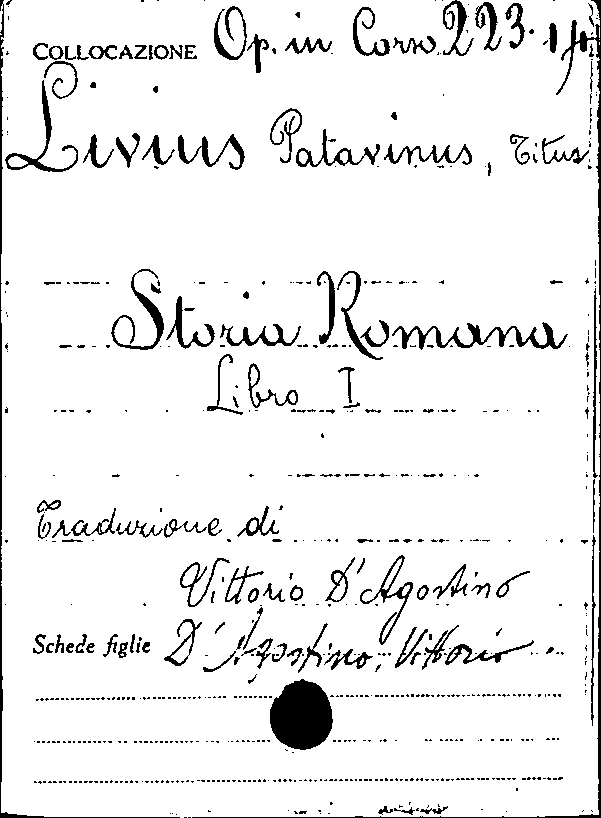 COLLOCAZIONE Op. in Corso 223.
Livius Patavinus, Titus
Storia Romana
Libro I
Traduzione di
Vittorio D'Agostino
Schede figlie D'Agostino, Vittorio.